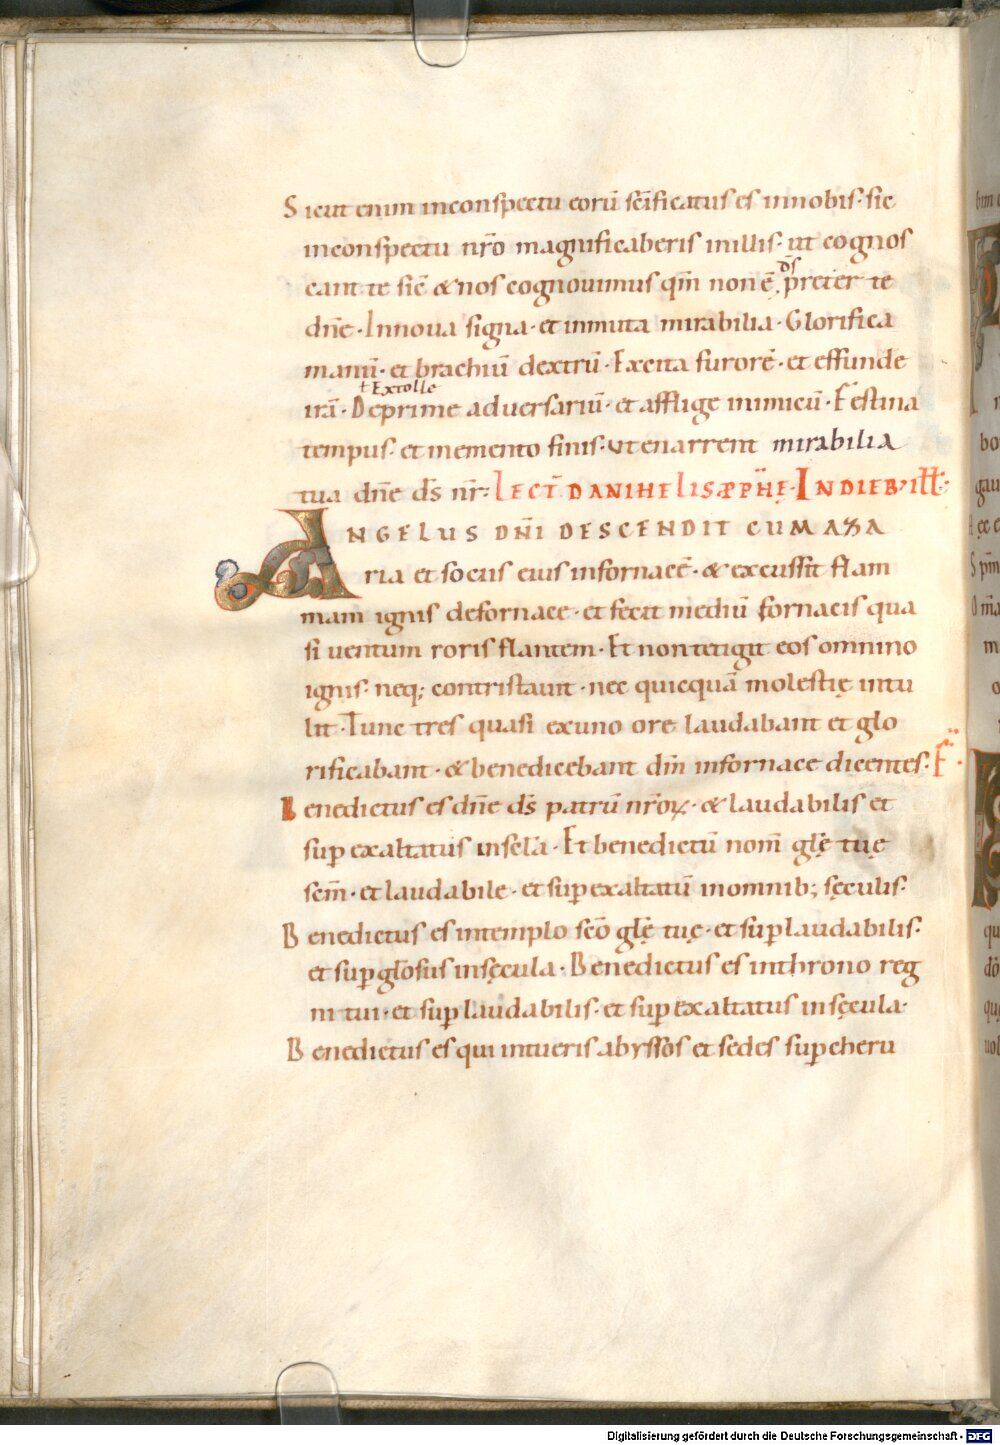 Sicut enim inconspectu eorū scīficatus es innobis· sic
inconspectu nr̄o magnificaberis inillis· ut cognos
cant te sic̄ & nos cognouimus qm̄ non ē· d̄s preter te
dn̄e· Innoua signa· et inmuta mirabilia· Glorifica
manū· et brachiū dextrū· Excita furorē· et effunde
ł Extolle
irā· Deprime aduersariū· et afflige inimicū· Festina
tempus· et memento finis· ut enarrent mirabilia
tua dn̄e d̄s nr̄: LECT̄ DANIHELIS PPHE· IN DIEB; ILL̄·
ANGELUS DN̄I DESCENDIT CUM AZA
ria et sociis eius infornacē· & excussit flam
mam ignis defornace· et fecit mediū fornacis qua
si uentum roris flantem· Et non tetigit eos omnino
ignis· neq; contristauit· nec quicquā molestię intu
lit· Tunc tres quasi exuno ore laudabant et glo
rificabant· & benedicebant dm̄ infornace dicentes·
Benedictus es dn̄e d̄s patrū nr̄oꝝ· & laudabilis et
suꝑ exaltatus insc̄la· Et benedictū nom̄ glę̄ tuę
sc̄m· et laudabile· et suꝑexaltatū inomnib; sęculis·
Benedictus es intemplo sc̄o glę̄ tuę· et suꝑlaudabilis·
et suꝑglōsus insęcula· Benedictus es inthrono reg
ni tui· et suꝑlaudabilis· et suꝑexaltatus insęcula·
Benedictus es qui intueris abyssos et sedes suꝑ cheru
Digitalisierung gefördert durch die Deutsche Forschungsgemeinschaft - DFG